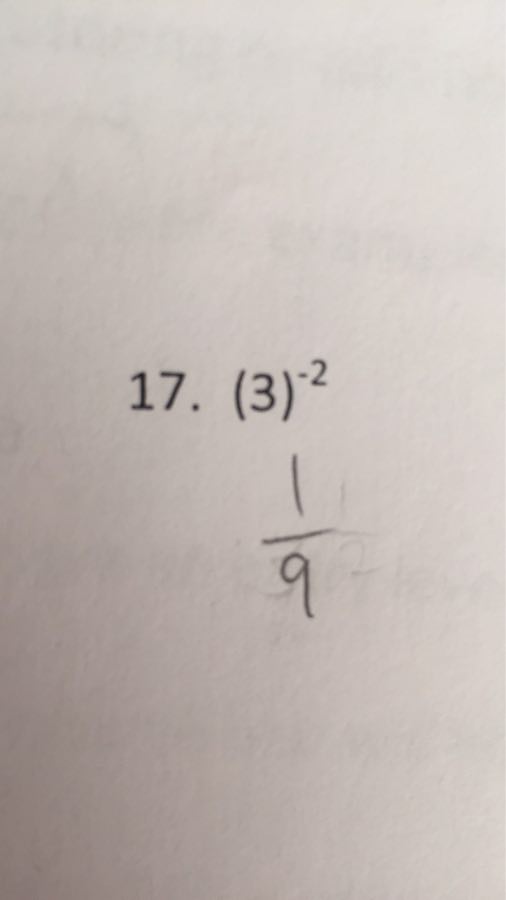 17. (3)⁻²
1
9